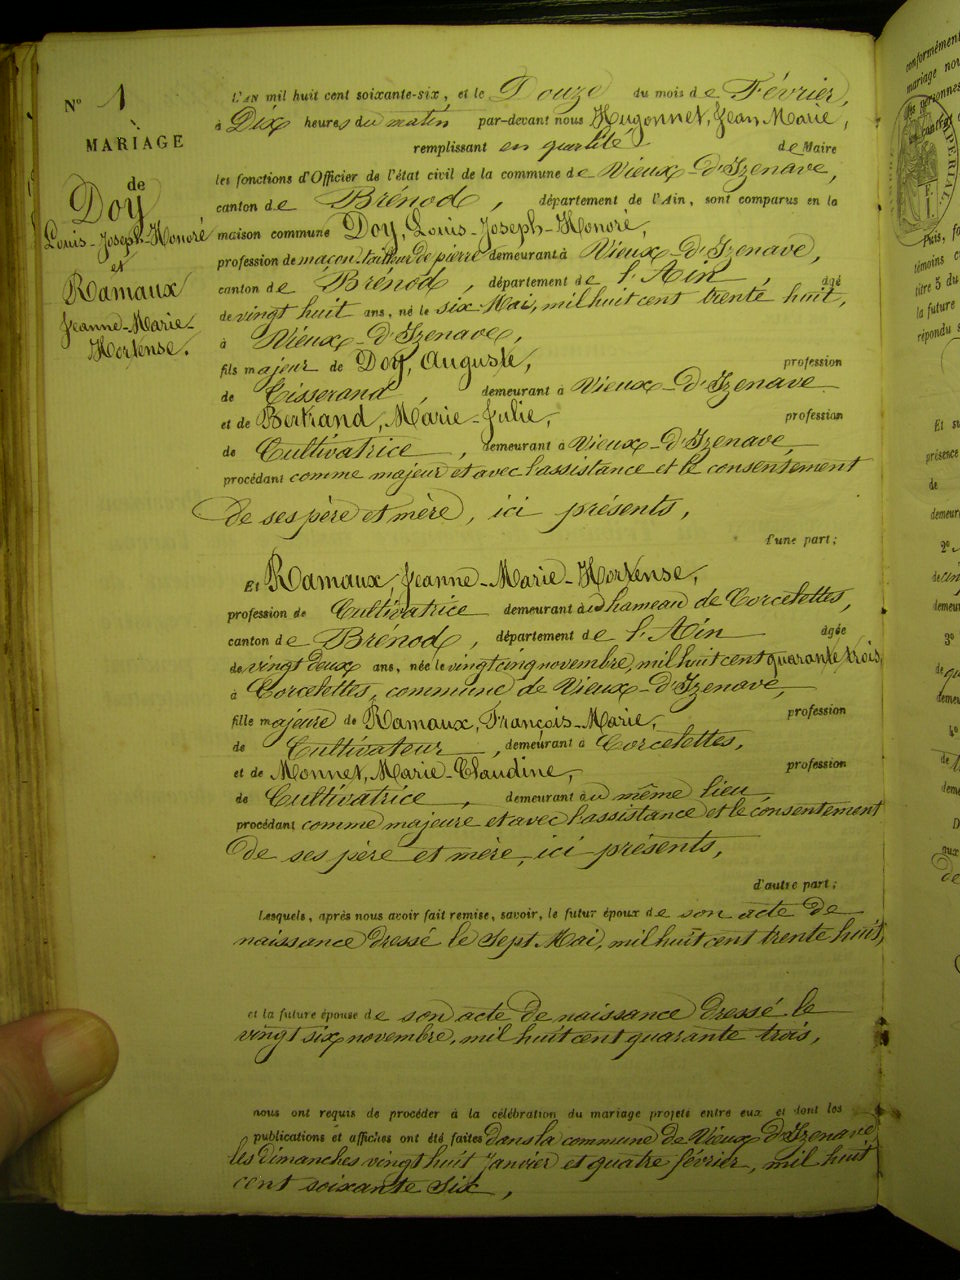 N° 1
MARIAGE
de
Doy
Louis-Joseph-Honoré
et
Ramaux
Jeanne-Marie-
Hortense.
L'AN mil huit cent soixante-six, et le Douze du mois de Février,
à Dix heures du matin par-devant nous Hugonnet, Jean Marie,
remplissant en qualité de Maire
les fonctions d'Officier de l'état civil de la commune de Vieux-d'Izenave,
canton de Brénod, département de l'Ain, sont comparus en la
maison commune Doy, Louis-Joseph-Honoré,
profession de maçon-tailleur de pierre demeurant à Vieux-d'Izenave,
canton de Brénod, département de l'Ain, âgé
de vingt huit ans, né le six Mai, mil huit cent trente huit,
à Vieux-d'Izenave,
fils majeur de Doy, Auguste, profession
de Tisserand, demeurant à Vieux-d'Izenave
et de Bertrand, Marie-Julie, profession
de Cultivatrice, demeurant à Vieux-d'Izenave
procédant comme majeur et avec l'assistance et le consentement
de ses père et mère, ici présents,
d'une part;
Et Ramaux, Jeanne-Marie-Hortense,
profession de Cultivatrice demeurant au hameau de Corcelettes,
canton de Brénod, département de l'Ain âgée
de vingt deux ans, née le vingt cinq novembre, mil huit cent quarante trois,
à Corcelettes, commune de Vieux-d'Izenave,
fille majeure de Ramaux, François-Marie, profession
de Cultivateur, demeurant à Corcelettes,
et de Monnet, Marie-Claudine, profession
de Cultivatrice, demeurant au même lieu,
procédant comme majeure et avec l'assistance et le consentement
de ses père et mère, ici présents,
d'autre part;
Lesquels, après nous avoir fait remise, savoir, le futur époux de son acte de
naissance dressé le sept Mai, mil huit cent trente huit,
et la future épouse de son acte de naissance dressé le
vingt six novembre, mil huit cent quarante trois,
nous ont requis de procéder à la célébration du mariage projeté entre eux et dont les
publications et affiches ont été faites dans la commune de Vieux d'Izenave,
les dimanches vingt huit janvier et quatre février, mil huit
cent soixante six,
conformément
mariage
des personnes
témoins
titre 5 du
la future
répondu
présence
de
2°
3°